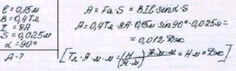 ℓ = 0,15м
B = 0,4Тл
I = 8A
S = 0,025м
α = 90°
A - ?
A = Fₐ · S = BIℓ sinα · S
A = 0,4Тл · 8A · 0,15м sin90° · 0,025м =
= 0,012Дж
[Тл · A · м · м = (Н / A · м) · A · м · м = Н · м = Дж]